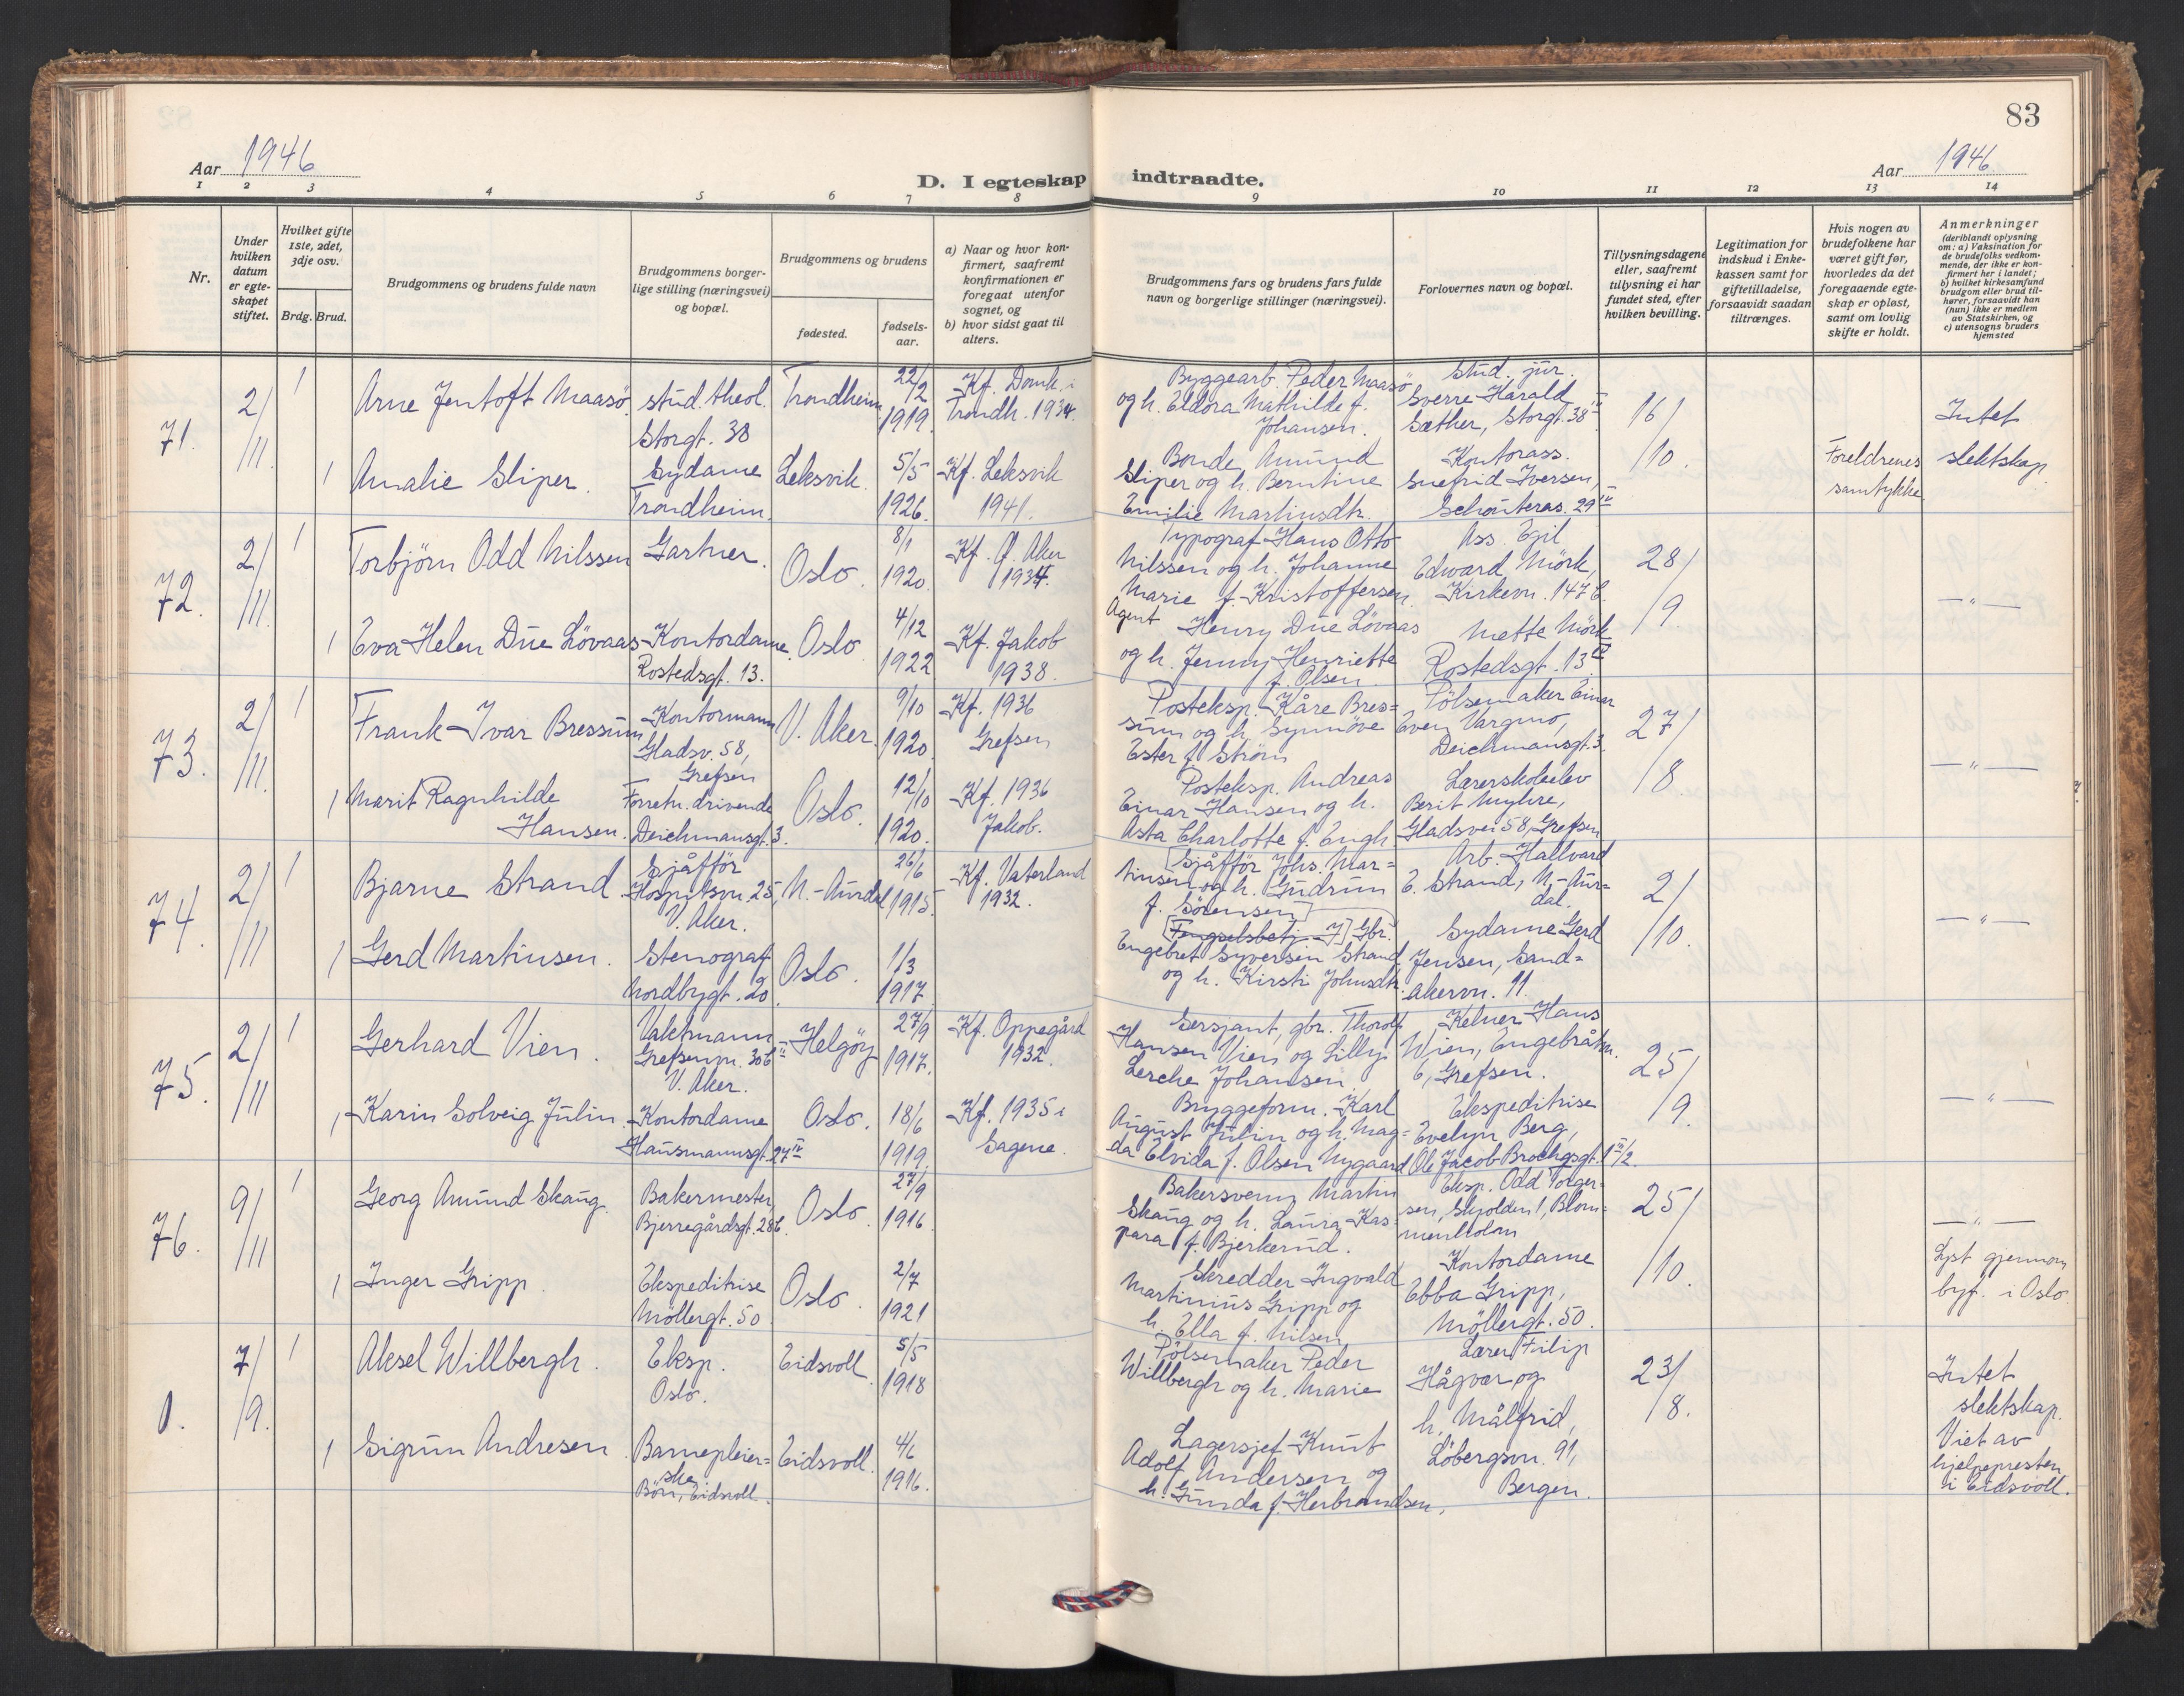 83
Aar 1946
D. I egteskap indtraadte.
Aar 1946
1 2 3 4 5 6 7 8 9 10 11 12 13 14
Nr.
Under hvilken datum er egteskapet stiftet.
Hvilket gifte 1ste, 2det, 3dje osv.
Brdg. Brud.
Brudgommens og brudens fulde navn
Brudgommens borgerlige stilling (næringsvei) og bopæl.
Brudgommens og brudens
fødested.
fødselsaar.
a) Naar og hvor konfirmert, saafremt konfirmationen er foregaat utenfor sognet, og
b) hvor sidst gaat til alters.
Brudgommens fars og brudens fars fulde navn og borgerlige stillinger (næringsvei).
Forlovernes navn og bopæl.
Tillysningsdagene eller, saafremt tillysning ei har fundet sted, efter hvilken bevilling.
Legitimation for indskud i Enkekassen samt for giftetilladelse, forsaavidt saadan tiltrænges.
Hvis nogen av brudefolkene har været gift før, hvorledes da det foregaaende egteskap er opløst, samt om lovlig skifte er holdt.
Anmerkninger
(deriblandt oplysning om: a) Vaksination for de brudefolks vedkommende, der ikke er konfirmert her i landet; b) hvilket kirkesamfund brudgom eller brud tilhører, forsaavidt han (hun) ikke er medlem av Statskirken, og c) utensogns bruders hjemsted
71. 2/11 1
Arne Jentoft Maasö
stud. theol.
Storgt. 38
Trondheim
22/2 1919.
Kf. Domk. i
Trondh. 1934.
Byggearb. Peder Maasö
og h. Eldora Mathilde f.
Johansen.
Stud. jur.
Sverre Harald
Sæther, Storgt. 38 IV
16/10.
Intet
slektskap.
1 Amalie Sliper.
Sydame
Trondheim.
Leksvik
5/5 1926.
Kf. Leksvik
1941.
Bonde Amund
Sliper og h. Berntine
Emilie Martinsdtr.
Kontorass.
Snefrid Iversen,
Schönteras. 29 IV
Foreldrenes
samtykke
72. 2/11. 1
Torbjörn Odd Nilssen
Gartner.
Oslo.
8/1 1920.
Kf. Ø. Aker
1934.
Typograf Hans Otto
Nilssen og h. Johanne
Marie f. Kristoffersen.
Ass. Egil
Edward Mörk,
Kirkevn. 147 C.
28/9.
— " —
1 Eva Helen Due Lövaas
Kontordame.
Rostedsgt. 13.
Oslo
4/12 1922
Kf. Jakob
1938.
Agent Henry Due Lövaas
og h. Jenny Henriette
f. Olsen.
Mette Mörk
Rostedsgt. 13
73. 2/11. 1
Frank Ivar Bressum
Kontormann
Gladsv. 58,
Grefsen
V. Aker.
9/10 1920.
Kf. 1936
Grefsen
Posteksp. Kåre Bres=
sum og h. Synnöve
Ester f. Ström
Pölsemaker Einar
Even Vargmo,
Deichmansgt. 3.
27/8.
— " —
1 Marit Ragnhilde
Hansen.
Forretn.drivende
Deichmansgt. 3.
Oslo.
12/10 1920.
Kf. 1936
Jakob.
Posteksp. Andreas
Einar Hansen og h.
Asta Charlotte f. Engh
Lærerskoleelev
Berit Myhre,
Gladsvei 58, Grefsen
74. 2/11 1
Bjarne Strand
Sjåffør
Hospitsvn. 25,
V. Aker.
N.-Aurdal
26/6 1915.
Kf. Vaterland
1932.
[Sjåffør Johs. Mar=
tinsen og h. Gudrun
f. Sörensen]
Arb. Hallvard
E. Strand, N.-Aur=
dal.
2/10.
— " —
1 Gerd Martinsen.
Stenograf
Nordbygt. 20.
Oslo.
1/3 1917.
[Fengselsbetj. J] Gbr.
Engebret Syversen Strand
og h. Kirsti Johnsdtr.
Sydame Gerd
Jensen, Sand=
akervn. 11.
75. 2/11 1
Gerhard Vien.
Vaktmann
Grefsenvn. 30 C II
V. Aker.
Helgöy
27/9 1917.
Kf. Oppegård
1932.
Sersjant, gbr. Thorolf
Hansen Vien og Lilly
Lerche Johansen
Kelner Hans
Wien, Engebråtvn.
6, Grefsen.
25/9.
— " —
1 Karin Solveig Julin.
Kontordame
Hausmannsgt. 27 IV
Oslo.
18/6 1919.
Kf. 1935 i
Sagene.
Bryggeform. Karl
August Julin og h. Mag=
da Elvida f. Olsen Nygaard
Ekspeditrise
Evelyn Berg,
Ole Jacob Brochsgt. 1 III/2.
76. 9/11 1
Georg Amund Skaug.
Bakermester,
Bjerregårdsgt. 28 C.
Oslo.
27/9 1916.
Bakersvenn Martin
Skaug og h. Laura Kas=
para f. Bjerkerud.
Eksp. Odd Torger=
sen, Skjolden 1, Blom=
menholm
25/10.
— " —
Lyst gjennom
byf. i Oslo.
1 Inger Gripp.
Ekspeditrise
Möllergt. 50.
Oslo.
2/7 1921
Skredder Ingvald
Martinius Gripp og
h. Ella f. Nilsen
Kontordame
Ebba Gripp,
Möllergt. 50.
0. 7/9. 1
Aksel Willbergh.
Eksp.
Oslo.
Eidsvoll
5/5 1918
Pölsemaker Peder
Willbergh og h. Marie
Lærer Filip
Hågvar og
h. Målfrid,
Löbergsvn. 91,
Bergen.
23/8.
Intet
slektskap.
Viet av
hjelpepresten
i Eidsvoll.
1 Sigrun Andresen.
Barnepleier=
ske
Bön, Eidsvoll.
Eidsvoll.
4/6 1916.
Lagersjef Knut
Adolf Andersen og
h. Gunda f. Herbrandsen.